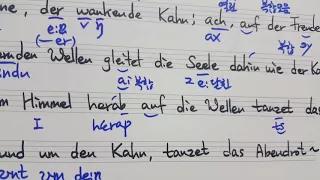 열린 복합모음
ne, der wankende Kahn; ach, auf der Freude
e:ɐ v ŋ ax 복합
(-er)
ernden Wellen gleitet die Seele dahin wie der Ka
ndu ai 복합 z e: 닫힌
m Himmel herab auf die Wellen tanzet das
I herap ts
und um den Kahn, tanzet das Abendrot~